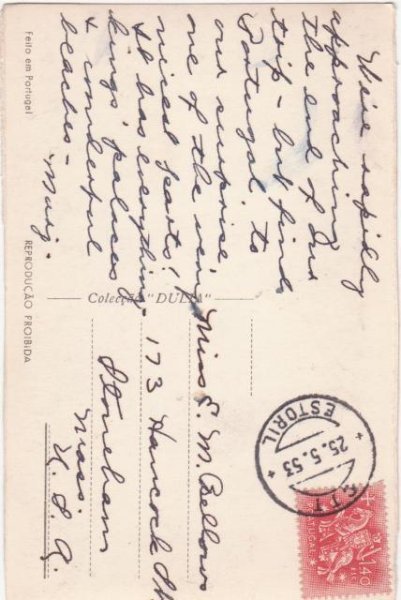 We're rapidly
approaching
the end of our
trip - but find
Portugal to
our surprise
one of the very
nicest parts!
It has everything
kings' palaces &
& wonderful
beaches -
Marj.
Miss E. M. Bellows
173 Hancock St
Stoneham
Mass.
U.S.A.
Colecção "DULIA"
Feito em Portugal
REPRODUÇÃO PROIBIDA
C.T.T.
25.5.53
ESTORIL
PORTUGAL
1$40